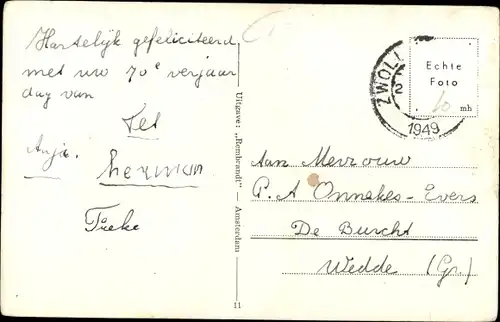 Hartelijk gefeliciteerd
met uw 70e verjaar
dag van
Jet
Anja.
herman
Tieke
Uitgave: „Rembrandt" — Amsterdam
11
ZWOLL
2
1949
Echte
Foto
10 mh
Aan Mevrouw
P. A Onnekes-Evers
De Burcht
Wedde (Gr.)